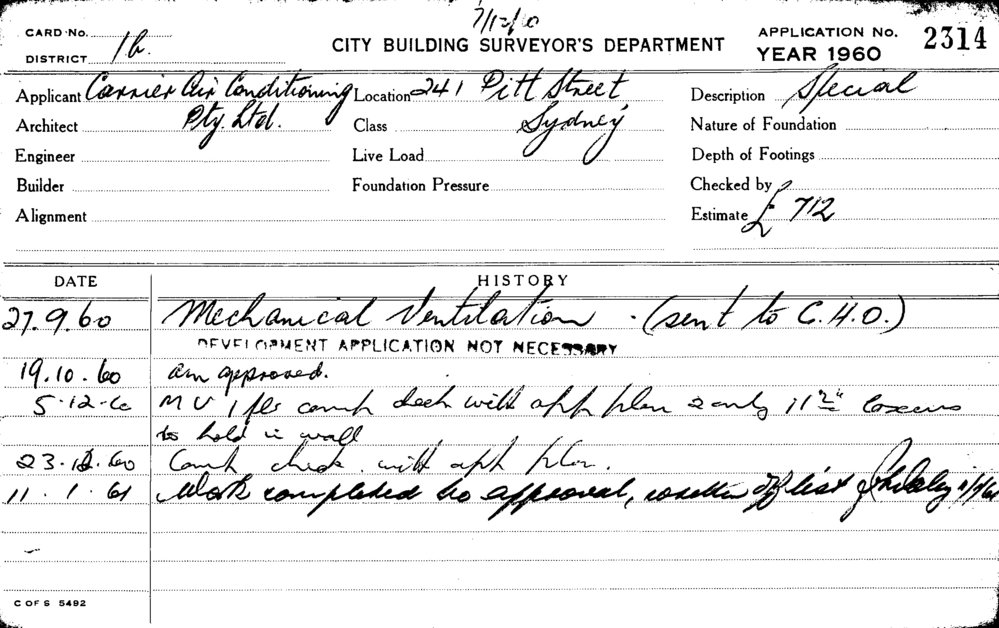 7/12/60
CARD No.
DISTRICT 1b.
CITY BUILDING SURVEYOR'S DEPARTMENT
APPLICATION No. 2314
YEAR 1960
Applicant Carrier Air Conditioning Location 241 Pitt Street Description Special
Architect Pty. Ltd. Class Sydney Nature of Foundation
Engineer Live Load Depth of Footings
Builder Foundation Pressure Checked by
Alignment Estimate £ 712
DATE HISTORY
27.9.60 Mechanical Ventilation. (sent to C.H.O.)
DEVELOPMENT APPLICATION NOT NECESSARY
19.10.60 am approved.
5.12.60 M V 1 flr with app plan
to hold in wall
23.12.60 check with app plan.
11.1.61 Work completed to approval, written off list
C OF S 5492